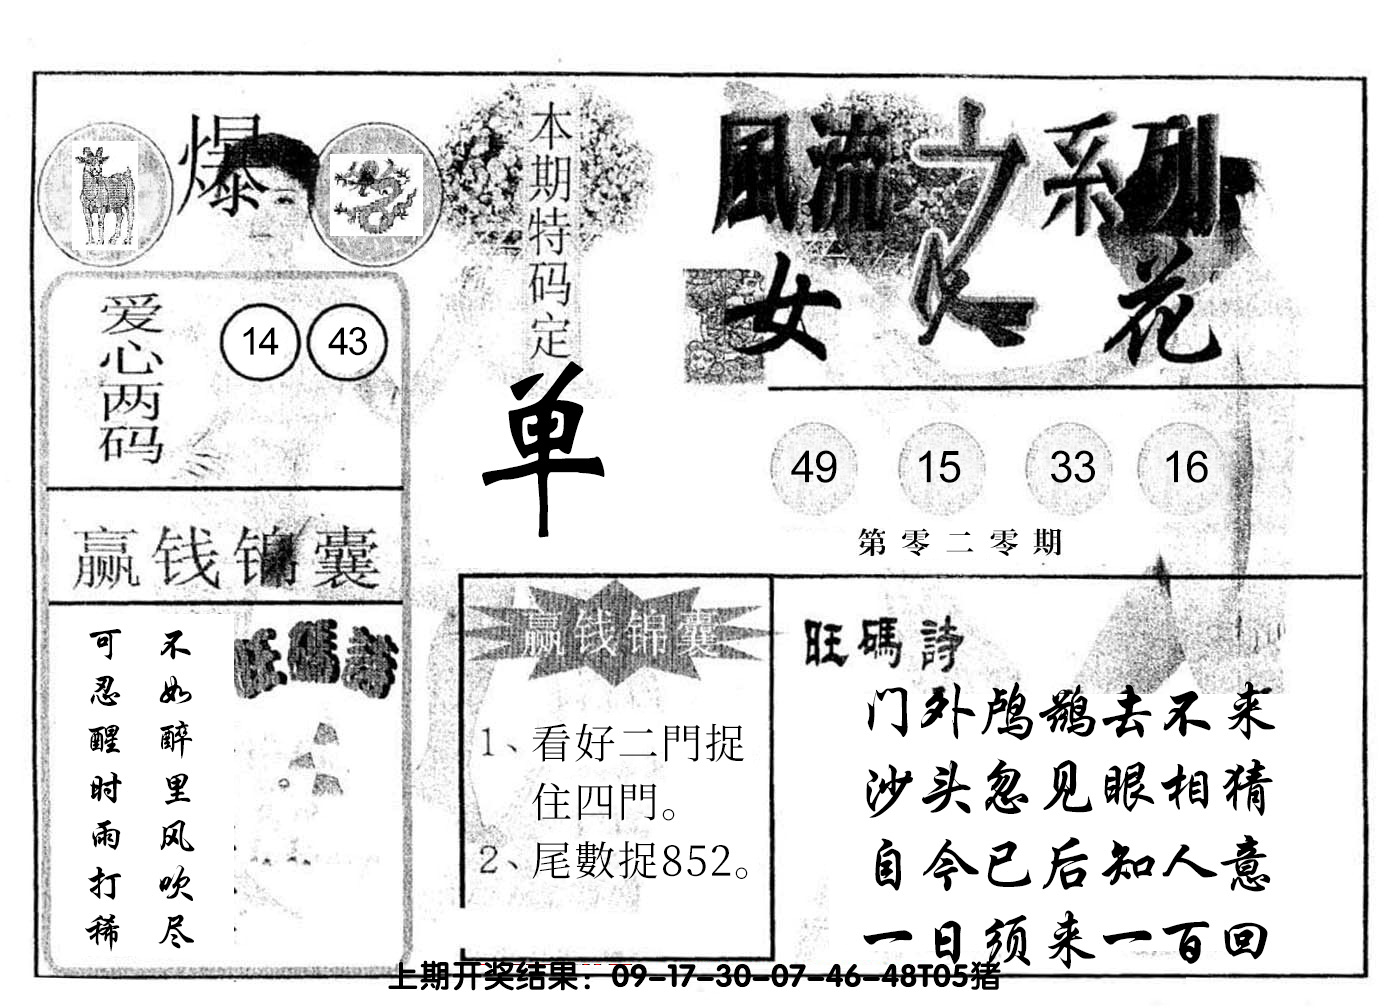 爆
本期特码定
单
風流之系列
女人花
爱心两码
14 43
49 15 33 16
第零二零期
赢钱锦囊
不如醉里风吹尽
可忍醒时雨打稀
旺碼詩
赢钱锦囊
1、看好二門捉
住四門。
2、尾數捉852。
旺碼詩
门外鸬鹚去不来
沙头忽见眼相猜
自今已后知人意
一日须来一百回
上期开奖结果：09-17-30-07-46-48T05猪